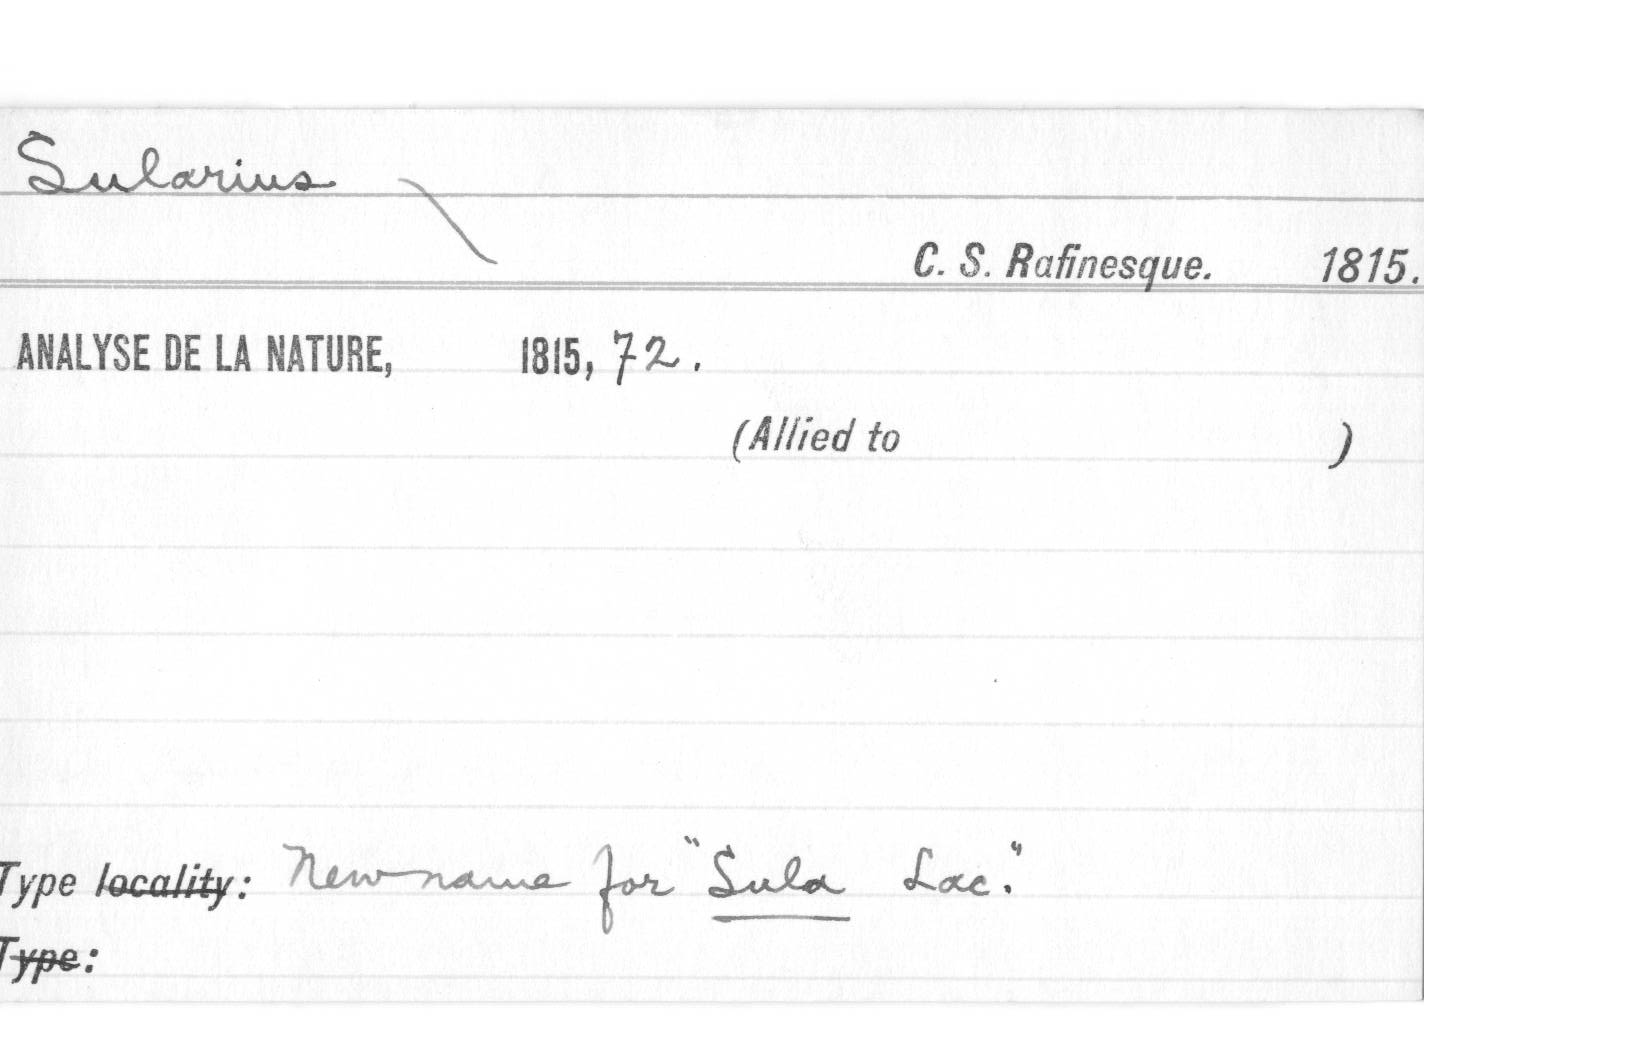 Sularius
C. S. Rafinesque. 1815.
ANALYSE DE LA NATURE, 1815, 72.
(Allied to )
Type locality: New name for "Sula Lac."
Type: